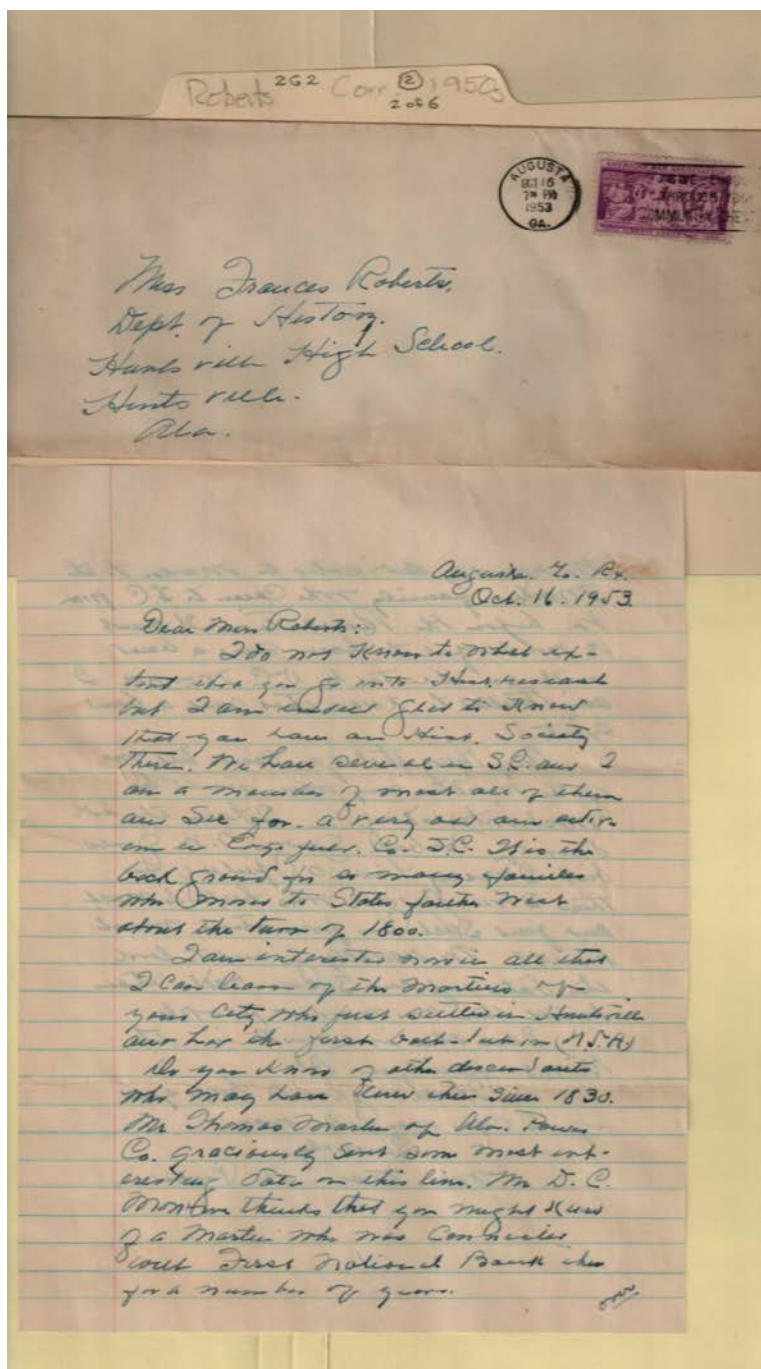 Roberts 2G2 Corr. 2 1950s
2 of 6
AUGUSTA
OCT 16
7 PM
1953
GA.
COMMUNITY CHEST
Miss Frances Roberts,
Dept. of History.
Huntsville High School.
Huntsville.
Ala.
Augusta. Ga. R4.
Oct. 16. 1953
Dear Miss Roberts:
I do not Know to what ex-
tent that you go into Hist. research
but I am indeed glad to Know
that you have an Hist. Society
there. We have several in S.C. and I
am a member of most all of them
and Sec for. a very old and active
one in Co. S.C. It is the
back ground for so many families
who moved to States farther West
about the turn of 1800.
I am interested now in all that
I can learn of the Martins of
your City who first settled in Huntsville
and had the first in (U.S.A.)
Do you Know of other descendants
who may have lived there since 1830.
Mr Thomas Martin of Ala. Power
Co. graciously sent some most int-
eresting data on this line. Mr D. C.
thinks that you might Know
of a Martin who was Connected
with First National Bank there
for a number of years.
over